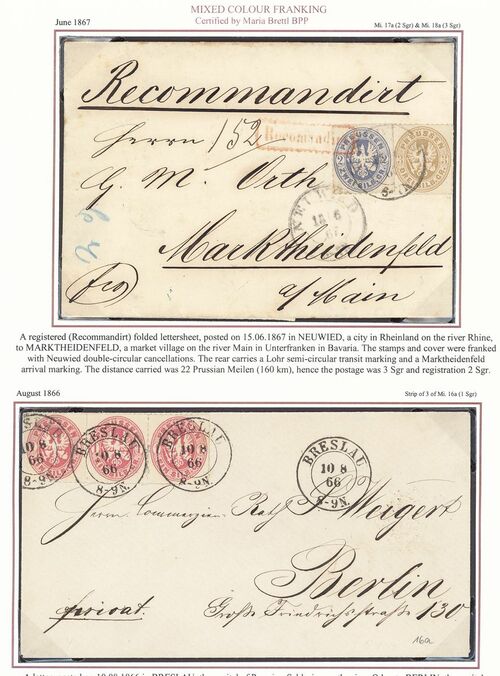 MIXED COLOUR FRANKING
Certified by Maria Brettl BPP
June 1867
Mi. 17a (2 Sgr) & Mi. 18a (3 Sgr)
Recommandirt
Herrn 152 Recomandirt
PREUSSEN ZWEI SILB.GR.
PREUSSEN DREI SILB.GR.
G. M. Orth
NEUWIED
15 6
Marktheidenfeld
a/Main
fco
A registered (Recommandirt) folded lettersheet, posted on 15.06.1867 in NEUWIED, a city in Rheinland on the river Rhine,
to MARKTHEIDENFELD, a market village on the river Main in Unterfranken in Bavaria. The stamps and cover were franked
with Neuwied double-circular cancellations. The rear carries a Lohr semi-circular transit marking and a Marktheidenfeld
arrival marking. The distance carried was 22 Prussian Meilen (160 km), hence the postage was 3 Sgr and registration 2 Sgr.
August 1866
Strip of 3 of Mi. 16a (1 Sgr)
BRESLAU
10 8
66
8-9N.
BRESLAU
10 8
66
8-9N.
BRESLAU
10 8
66
8-9N.
BRESLAU
10 8
66
8-9N.
Herrn Commerzien Rath Wagert
Berlin
privat.
Große Friedrichsstraße 130
16a